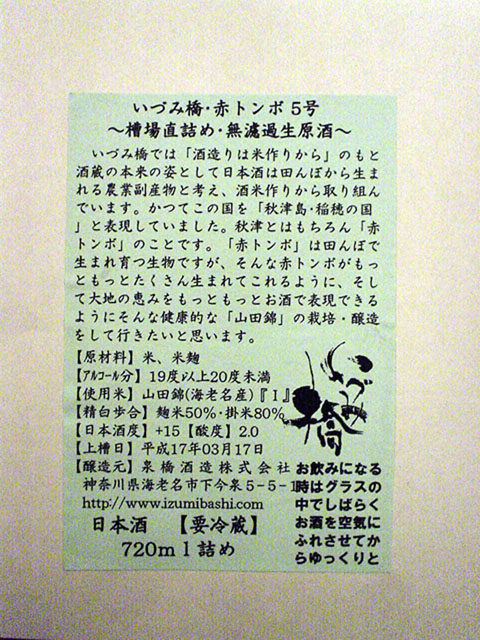 いづみ橋・赤トンボ 5号
～槽場直詰め・無濾過生原酒～
いづみ橋では「酒造りは米作りから」のもと
酒蔵の本来の姿として日本酒は田んぼから生ま
れる農業副産物と考え、酒米作りから取り組ん
でいます。かつてこの国を「秋津島・稲穂の国
」と表現していました。秋津とはもちろん「赤
トンボ」のことです。「赤トンボ」は田んぼで
生まれ育つ生物ですが、そんな赤トンボがもっ
ともっとたくさん生まれてこれるように、そし
て大地の恵みをもっともっとお酒で表現できる
ようにそんな健康的な「山田錦」の栽培・醸造
をして行きたいと思います。
【原材料】米、米麹
【アルコール分】19度以上20度未満
【使用米】山田錦(海老名産)『I』
【精白歩合】麹米50%・掛米80%
【日本酒度】+15【酸度】2.0
【上槽日】平成17年03月17日
【醸造元】泉橋酒造株式会社
神奈川県海老名市下今泉5-5-1
http://www.izumibashi.com
日本酒 【要冷蔵】
720ml詰め
いづみ橋
お飲みになる
時はグラスの
中でしばらく
お酒を空気に
ふれさせてか
らゆっくりと